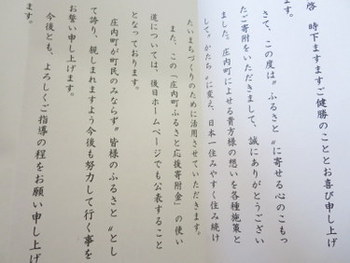 啓　時下ますますご健勝のこととお喜び申し上げ
さて、この度は〝ふるさと〟に寄せる心のこもっ
たご寄附をいただきまして、誠にありがとうござい
ました。庄内町によせる貴方様の想いを各種施策と
して〝かたち〟に変え、日本一住みやすく住み続け
たいまちづくりのために活用させていただきます。
また、この「庄内町ふるさと応援寄附金」の使い
道については、後日ホームページでも公表すること
となっております。
庄内町が町民のみならず〝皆様のふるさと〟とし
て誇り、親しまれますよう今後も努力して行く事を
お誓い申し上げます。
今後とも、よろしくご指導の程をお願い申し上げ
ます。